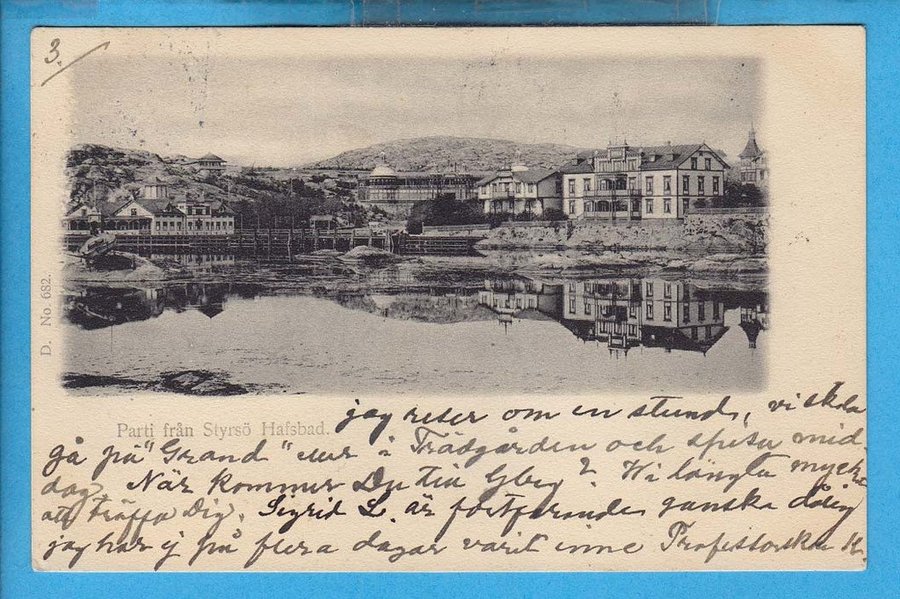 3.
D. No 682.
Parti från Styrsö Hafsbad.
jag reser om en stund, vi skola
gå på "Grand" eller i Trädgården och spisa mid
dag. När kommer Du till Gbg? Vi längta mycket
att träffa Dig. Sigrid L. är fortfarande ganska dålig
jag har ej på flera dagar varit inne Professorskan K.